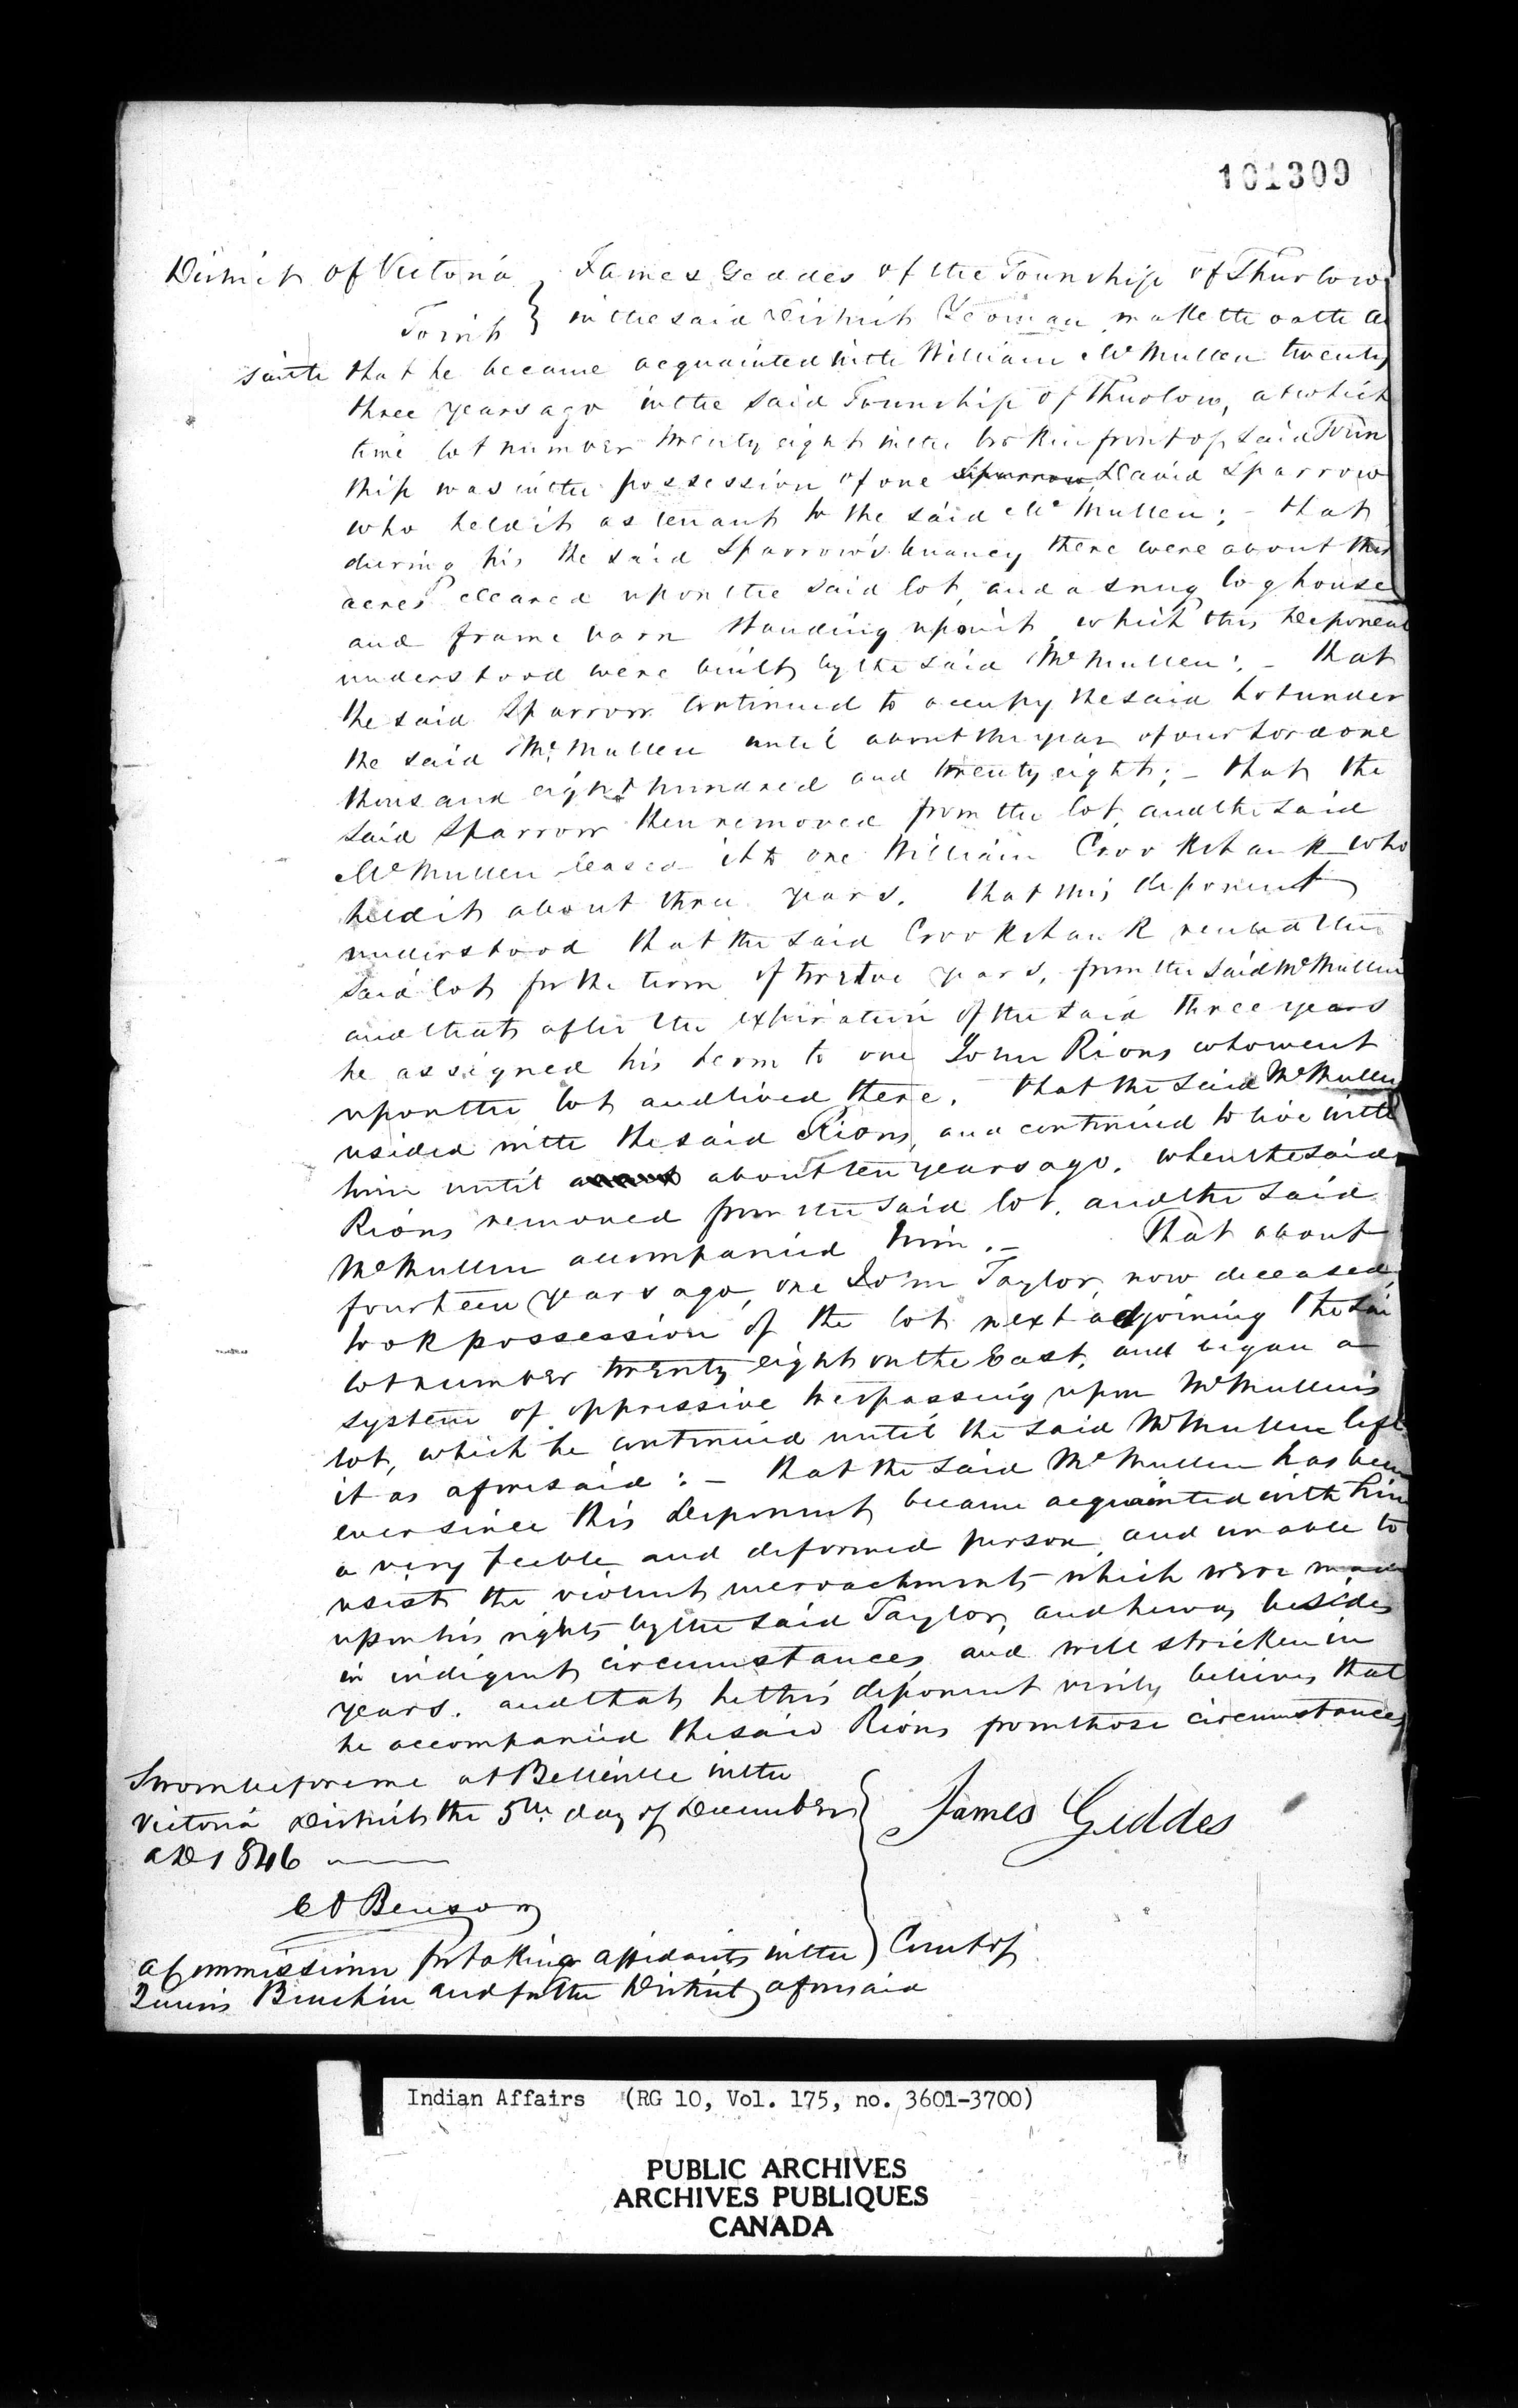 101309
District of Victoria } James Geddes of the Township of Thurlow
To wit } in the said District Yeoman maketh oath &
saith that he became acquainted with William McMullen twenty
three years ago in the said Township of Thurlow, at which
time lot number twenty eight in the broken front of said Town
ship was in the possession of one Sparrow, David Sparrow
who held it as tenant to the said McMullen; - that
during his the said Sparrow's tenancy there were about
acres cleared upon the said lot, and a snug log house
and frame barn standing upon it which this Deponent
understood were built by the said McMullen: - that
the said Sparrow continued to occupy the said lot under
the said McMullen until about the year of our Lord one
thousand eight hundred and twenty eight; - that the
said Sparrow then removed from the lot and the said
McMullen leased it to one William Crookshank who
held it about three years. that this deponent
understood that the said Crookshank rented the
said lot for the term of twelve years, from the said McMullen
and that after the expiration of the said three years
he assigned his term to one John Rions who went
upon the lot and lived there. that the said McMullen
resided with the said Rions, and continued to live with
him until about ten years ago. when the said
Rions removed from the said lot, and the said
McMullen accompanied him. - That about
fourteen years ago, one John Taylor, now deceased,
took possession of the lot next adjoining the sai
lot number twenty eight on the East, and began a
system of oppressive trespassing upon McMullen's
lot, which he continued until the said McMullen left
it as aforesaid: - that the said McMullen has been
ever since this deponent became acquainted with him
a very feeble and deformed person, and unable to
resist the violent encroachments which were made
upon his rights by the said Taylor, and he was besides
in indigent circumstances and well stricken in
years. and that he this deponent verily believes that
he accompanied the said Rions from those circumstances
Sworn before me at Belleville in the
Victoria District the 5th. day of December
AD 1846
James Geddes
Benson
A Commissioner for taking affidavits in the } Court of
Queen's Bench in and for the District aforesaid
Indian Affairs (RG 10, Vol. 175, no. 3601-3700)
PUBLIC ARCHIVES
ARCHIVES PUBLIQUES
CANADA